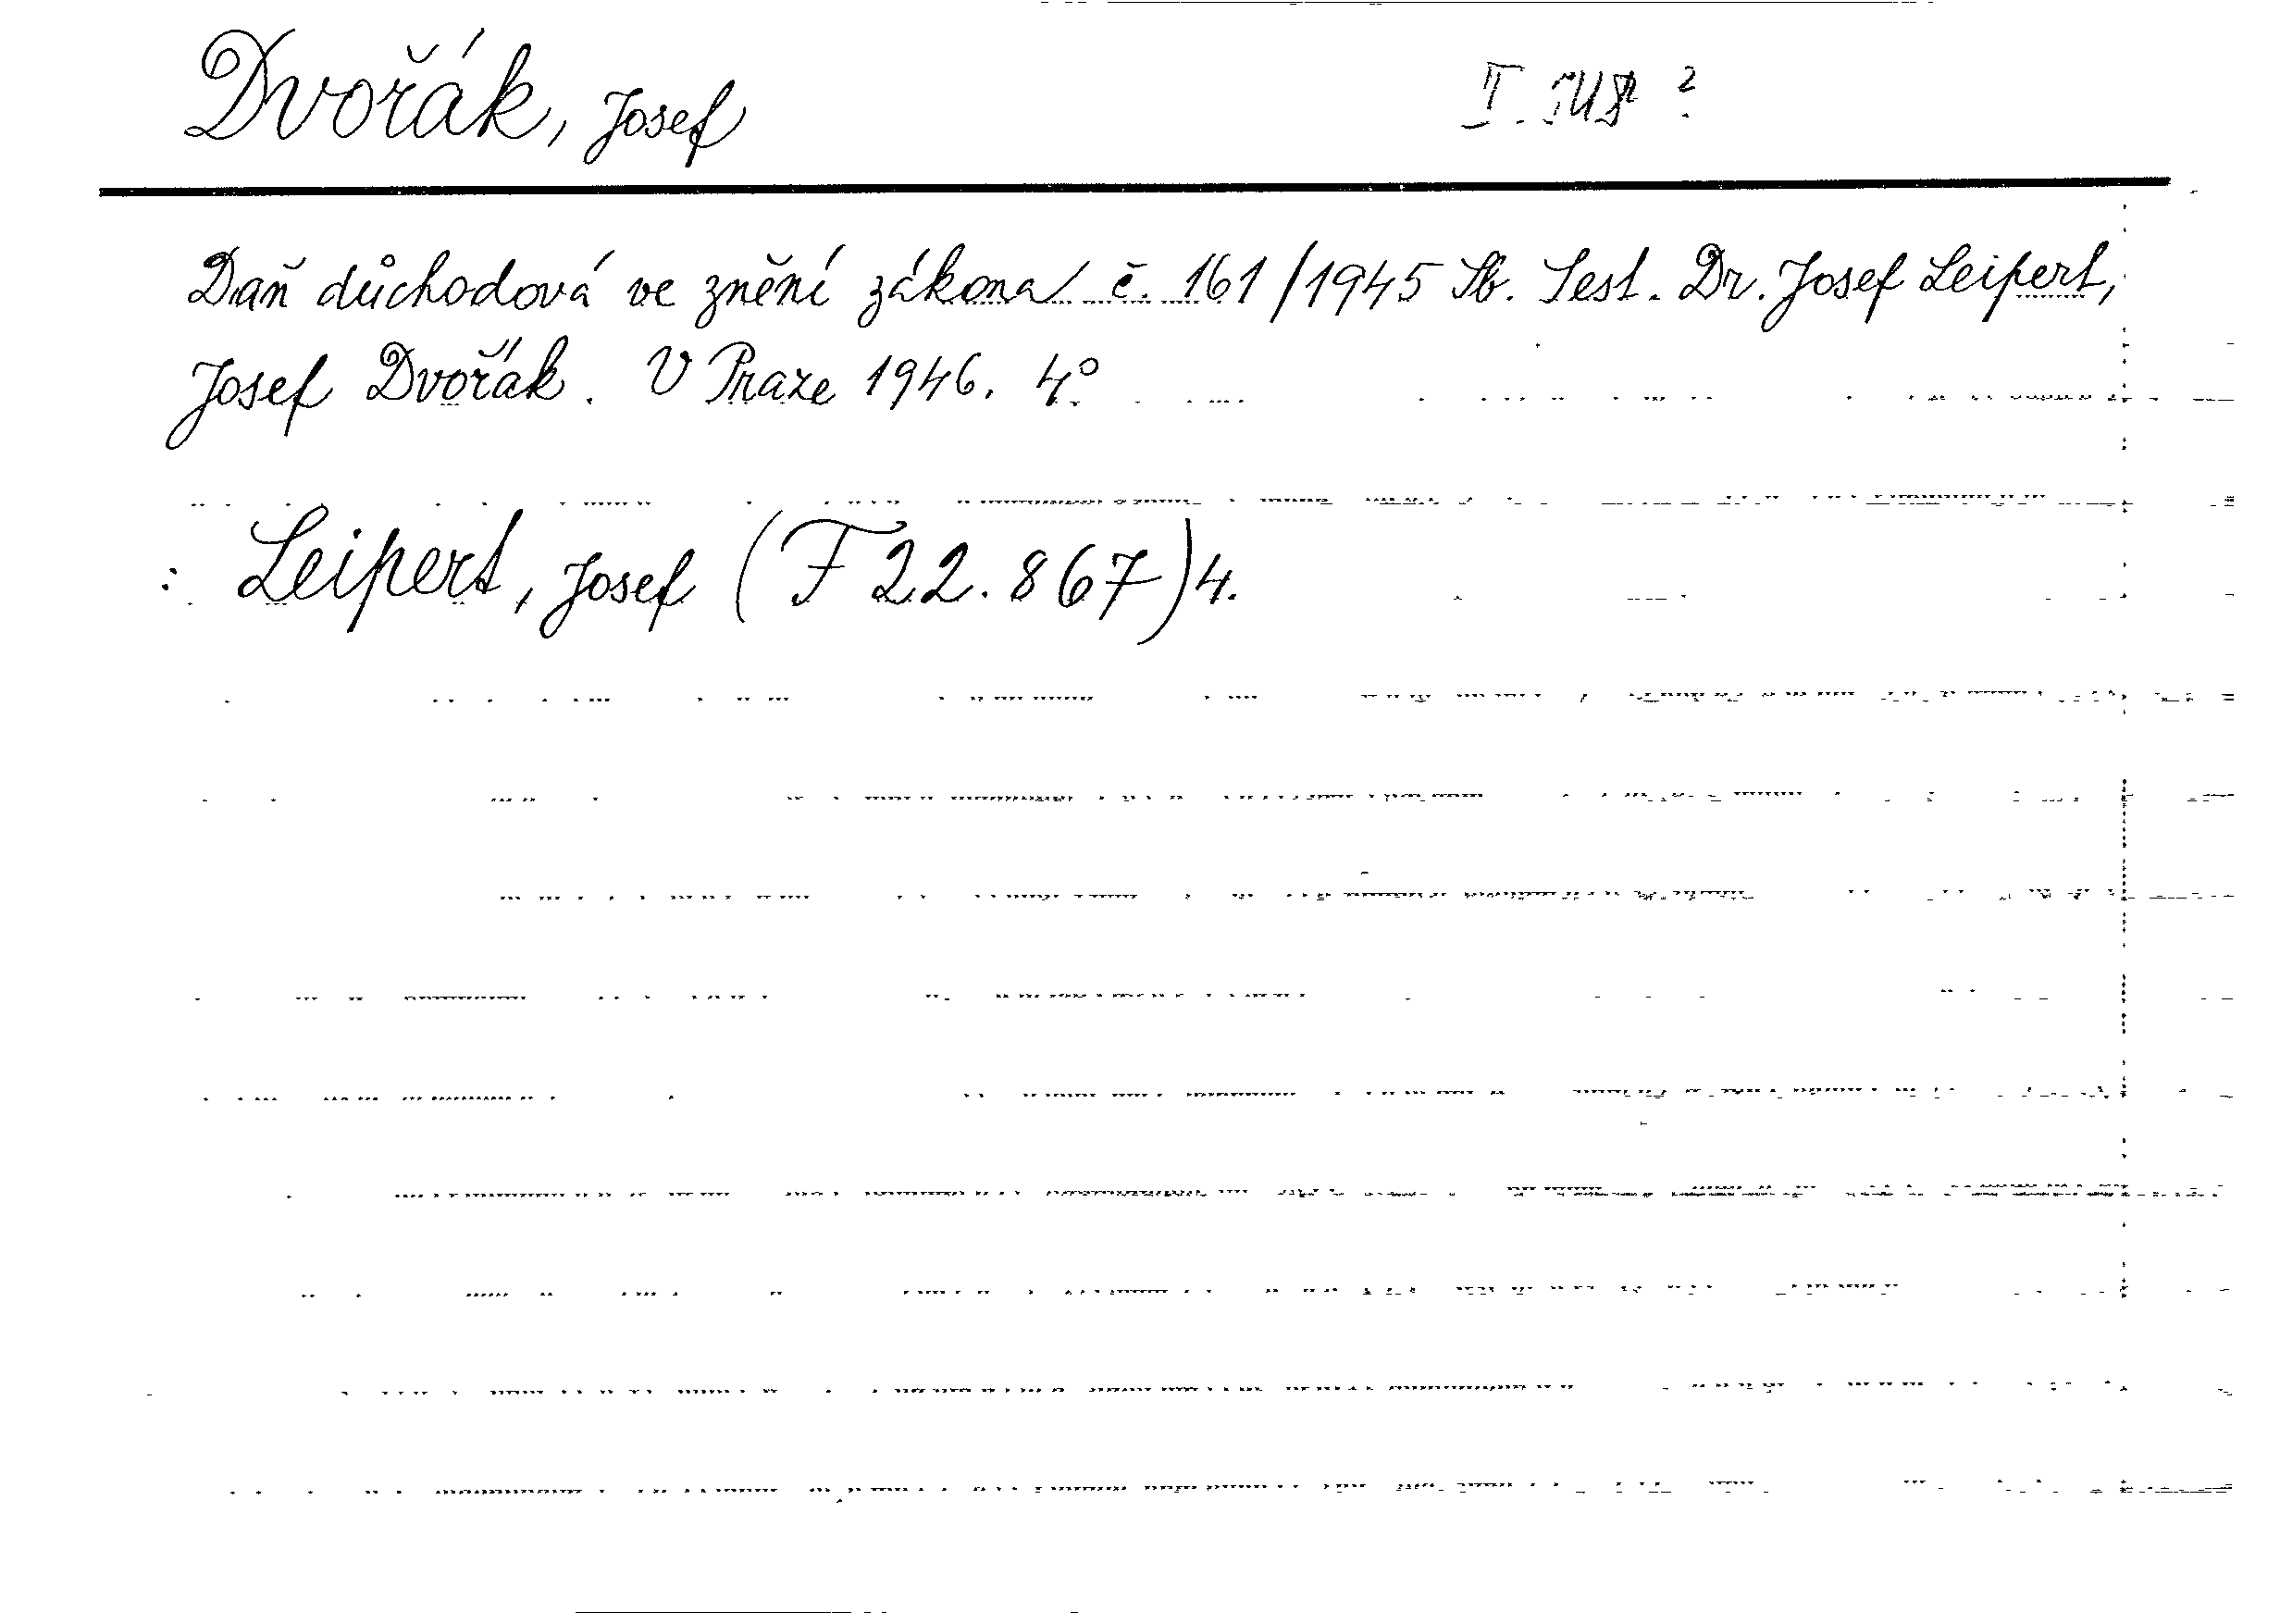 Dvořák, Josef
Daň důchodová ve znění zákona č. 161/1945 Sb. Sest. Dr. Josef Leipert,
Josef Dvořák. V Praze 1946. 4°
: Leipert, Josef (F 22.867) 4.